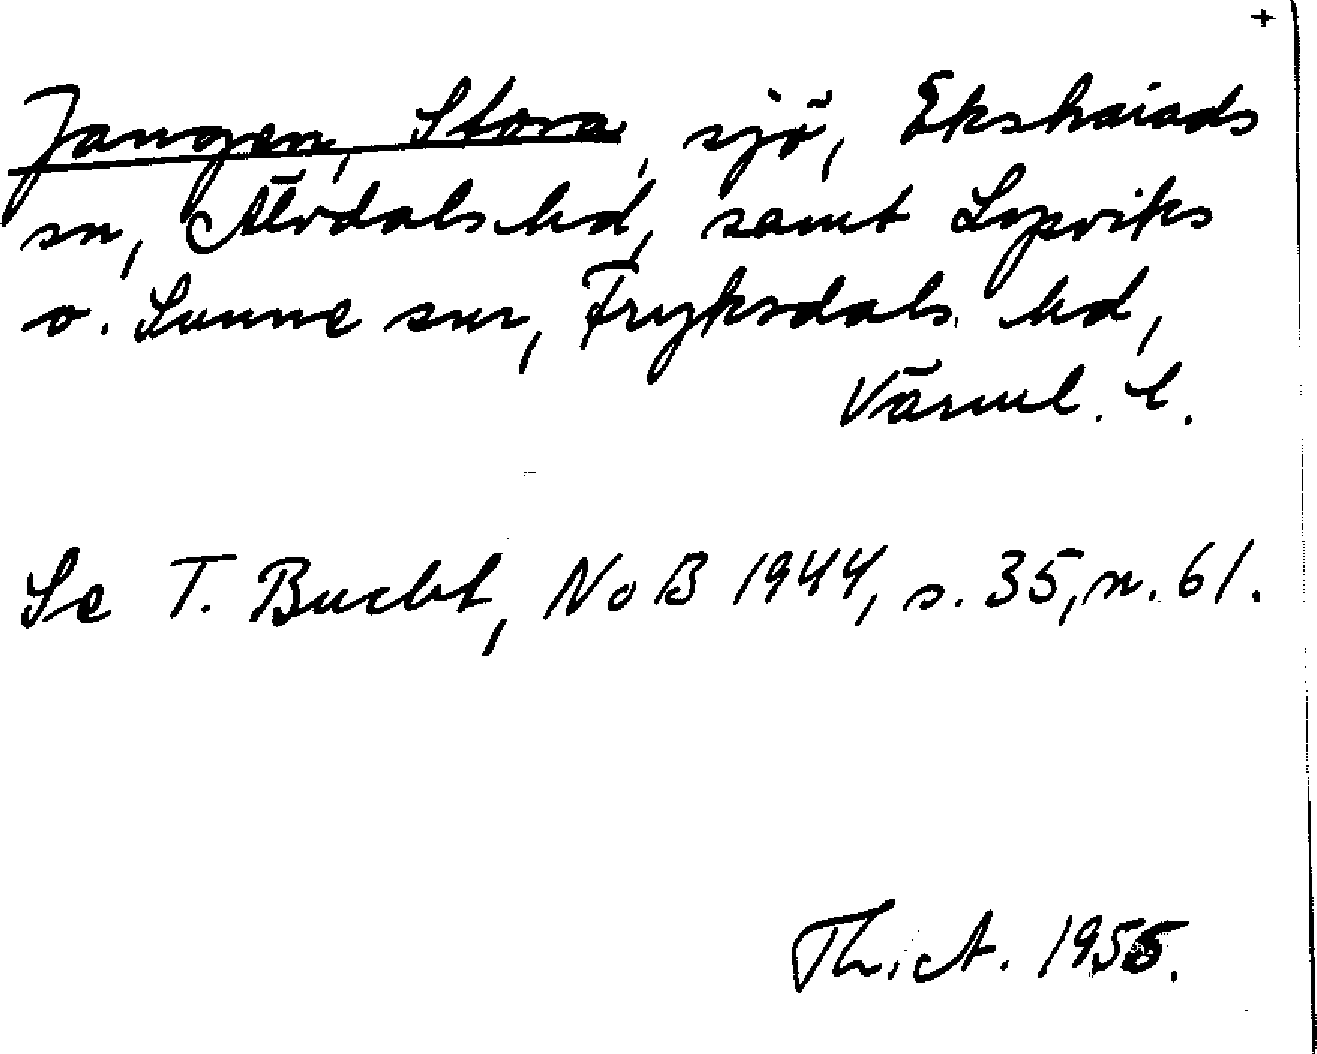 +
Jangen, Stora, sjö, Ekshärads
sn, Älvdals hd, samt Lysviks
o. Sunne snr, Fryksdals hd,
Värml. l.
Se T. Bucht, NoB 1944, s. 35, n. 61.
Th. A. 1955.